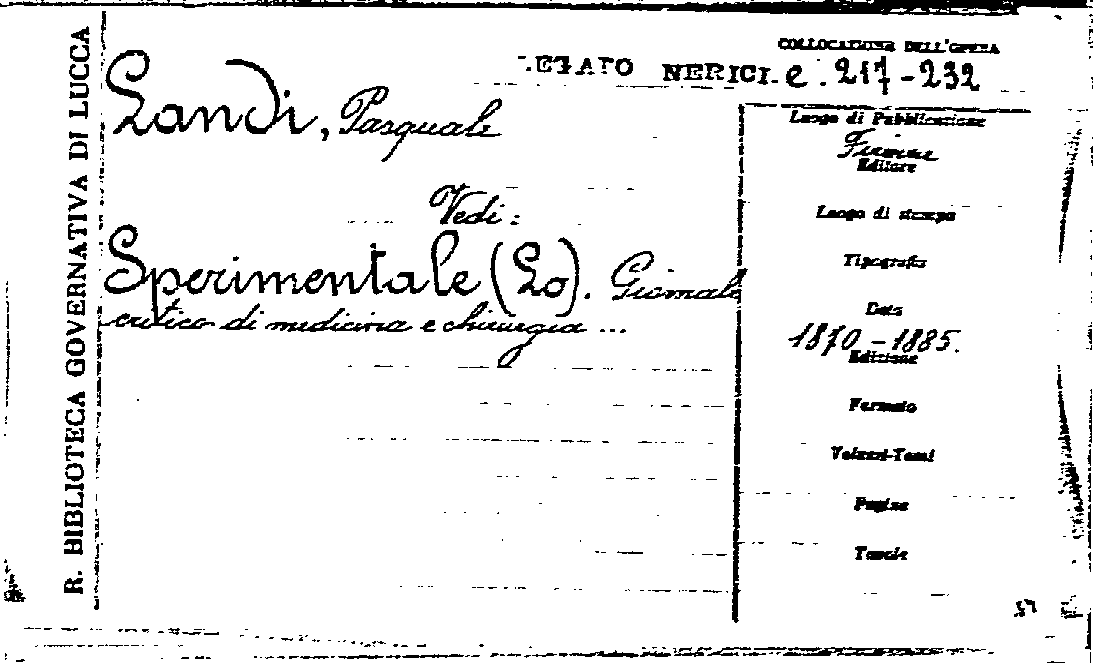 R. BIBLIOTECA GOVERNATIVA DI LUCCA
COLLOCAZIONE DELL'OPERA
LEGATO NERICI e. 217-232
Landi, Pasquale
Vedi:
Sperimentale (Lo). Giornale
critico di medicina e chirurgia ...
Luogo di Pubblicazione
Firenze
Editore
Luogo di stampa
Tipografia
Data
1870-1885.
Edizione
Formato
Volumi-Tomi
Pagine
Tavole